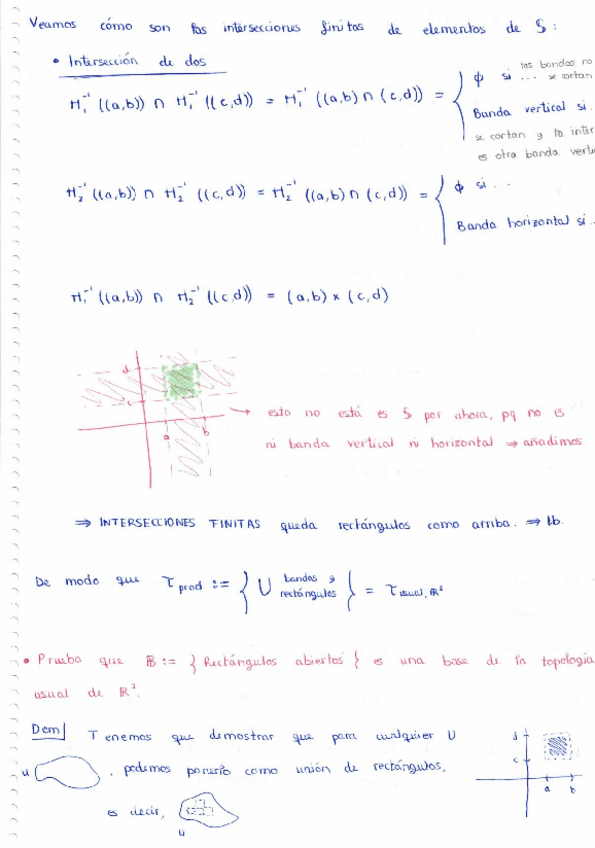 Veamos cómo son las intersecciones finitas de elementos de S:
• Intersección de dos
Π₁⁻¹((a,b)) ∩ Π₁⁻¹((c,d)) = Π₁⁻¹((a,b) ∩ (c,d)) = { ϕ si ... las bandas no se cortan
Banda vertical si.
se cortan y la inter
es otra banda verti
Π₂⁻¹((a,b)) ∩ Π₂⁻¹((c,d)) = Π₂⁻¹((a,b) ∩ (c,d)) = { ϕ si ...
Banda horizontal si..
Π₁⁻¹((a,b)) ∩ Π₂⁻¹((c,d)) = (a,b) × (c,d)
d
c
a b
→ esto no está es S por ahora, pq no es
ni banda vertical ni horizontal ⇒ añadimos
⇒ INTERSECCIONES FINITAS queda rectángulos como arriba. ⇒ tb.
De modo que τ prod := { ∪ bandas y rectángulos } = τ usual, ℝ²
• Prueba que 𝔹 := { Rectángulos abiertos } es una base de la topología
usual de ℝ².
Dem| Tenemos que demostrar que para cualquier U
u , podemos ponerlo como unión de rectángulos,
es decir,
u
d
c
a b